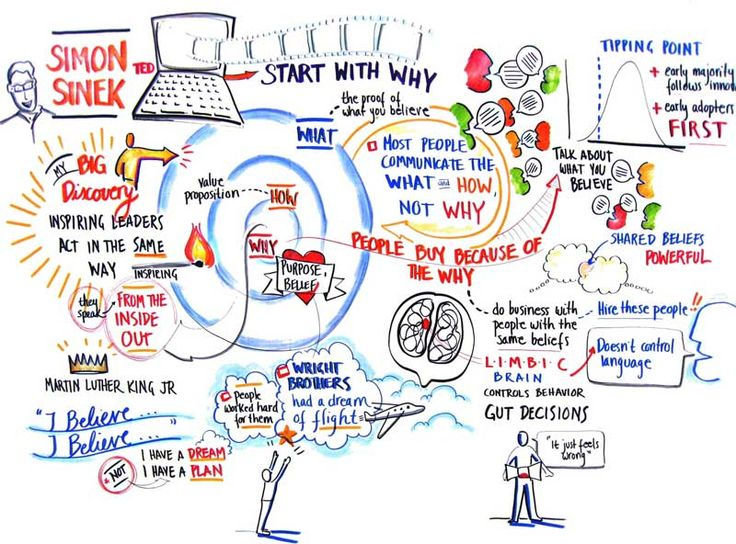 SIMON
SINEK
TED
START WITH WHY
WHAT
the proof of
what you believe
value
proposition
HOW
WHY
PURPOSE,
BELIEF
MY
BIG
Discovery
INSPIRING LEADERS
ACT IN THE SAME
WAY
INSPIRING
they
speak
FROM THE
INSIDE
OUT
MARTIN LUTHER KING JR
"I Believe...
I Believe..."
I HAVE A DREAM
NOT
I HAVE A PLAN
MOST PEOPLE
COMMUNICATE THE
WHAT and HOW,
NOT WHY
PEOPLE BUY BECAUSE OF
THE WHY
TIPPING POINT
+ early majority
follows innov
+ early adopters
FIRST
TALK ABOUT
WHAT YOU
BELIEVE
SHARED BELIEFS
POWERFUL
do business with
people with the
same beliefs
Hire these people!!
LIMBIC
BRAIN
CONTROLS BEHAVIOR
GUT DECISIONS
Doesn't control
language
"It just feels
wrong"
People
worked hard
for them
WRIGHT
BROTHERS
had a dream
of flight